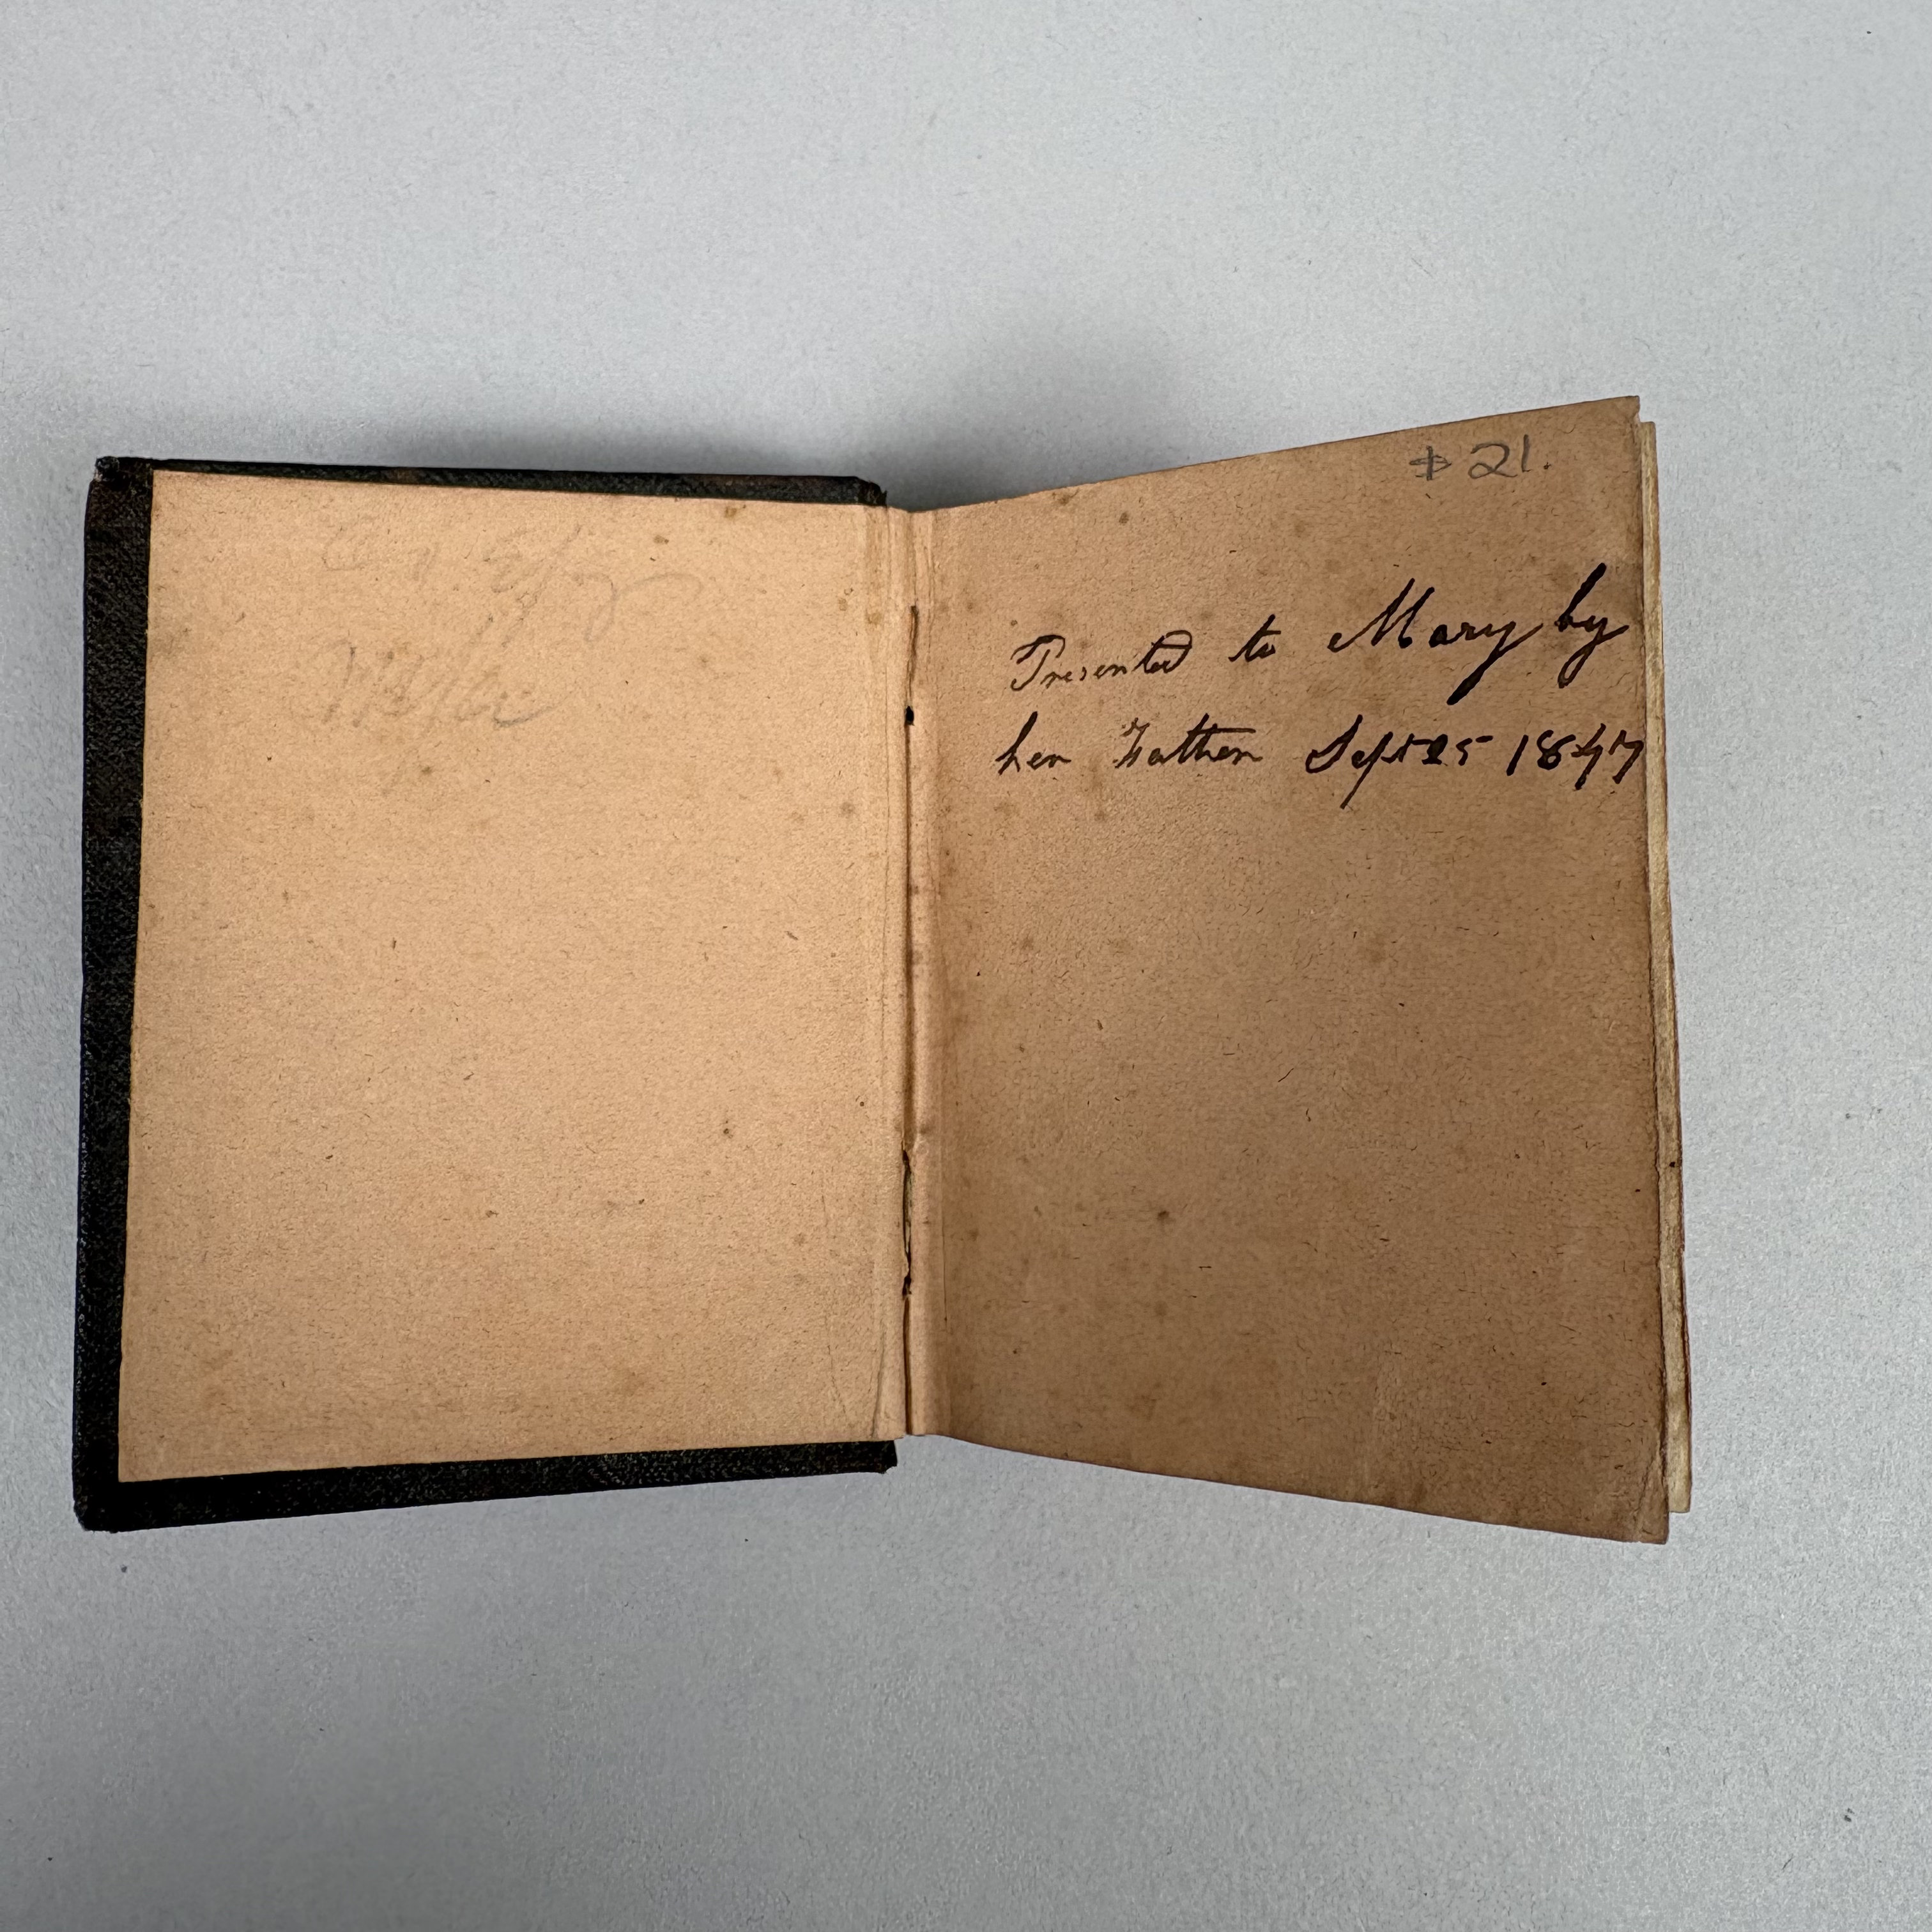 $21.
Presented to Mary by
her Father Sept 25 1847